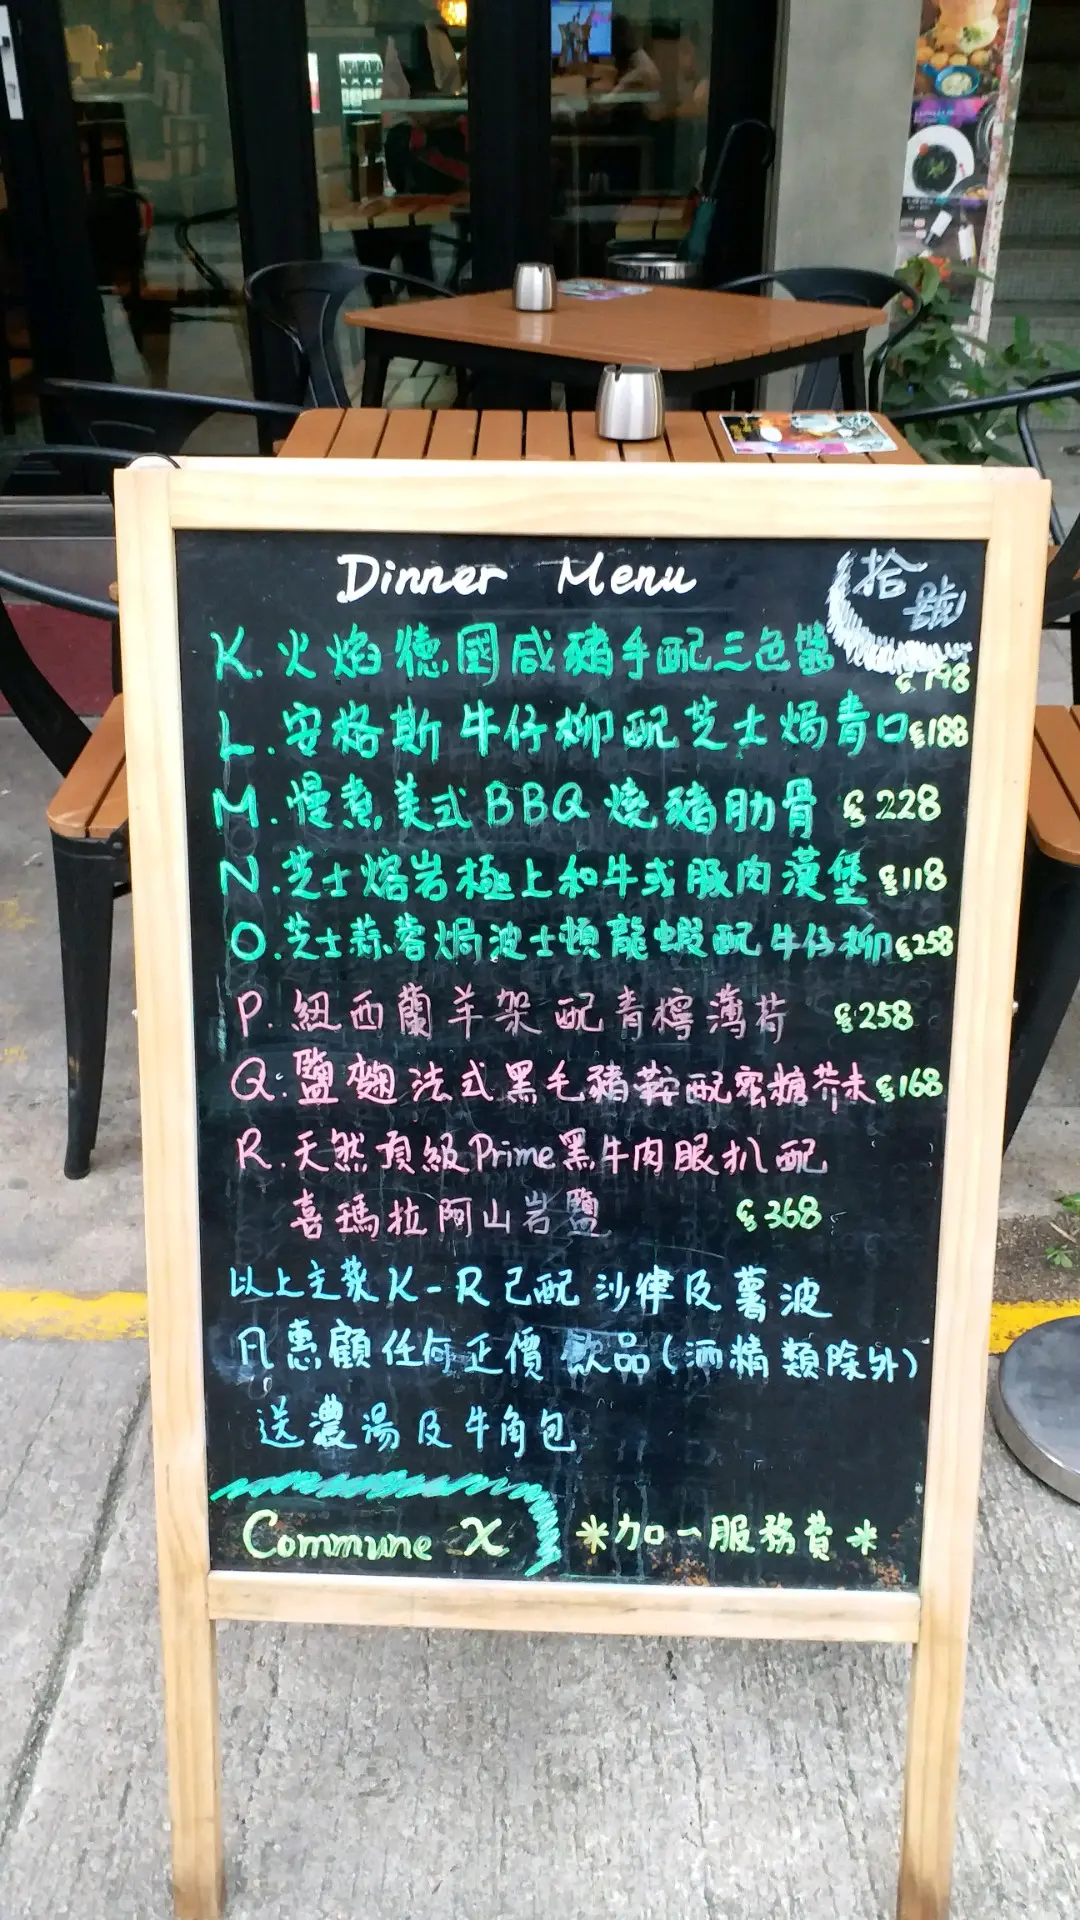 Dinner Menu
拾號
K. 火焰德國咸豬手配三色醬 $198
L. 安格斯牛仔柳配芝士焗青口 $188
M. 慢煮美式BBQ燒豬肋骨 $228
N. 芝士熔岩極上和牛或豚肉漢堡 $118
O. 芝士蒜蓉焗波士頓龍蝦配牛仔柳 $258
P. 紐西蘭羊架配青檸薄荷 $258
Q. 鹽麹法式黑毛豬鞍配蜜糖芥末 $168
R. 天然頂級Prime黑牛肉眼扒配
喜瑪拉阿山岩鹽 $368
以上主菜K-R己配沙律及薯波
凡惠顧任何正價飲品(酒精類除外)
送濃湯及牛角包
Commune X
*加一服務費*